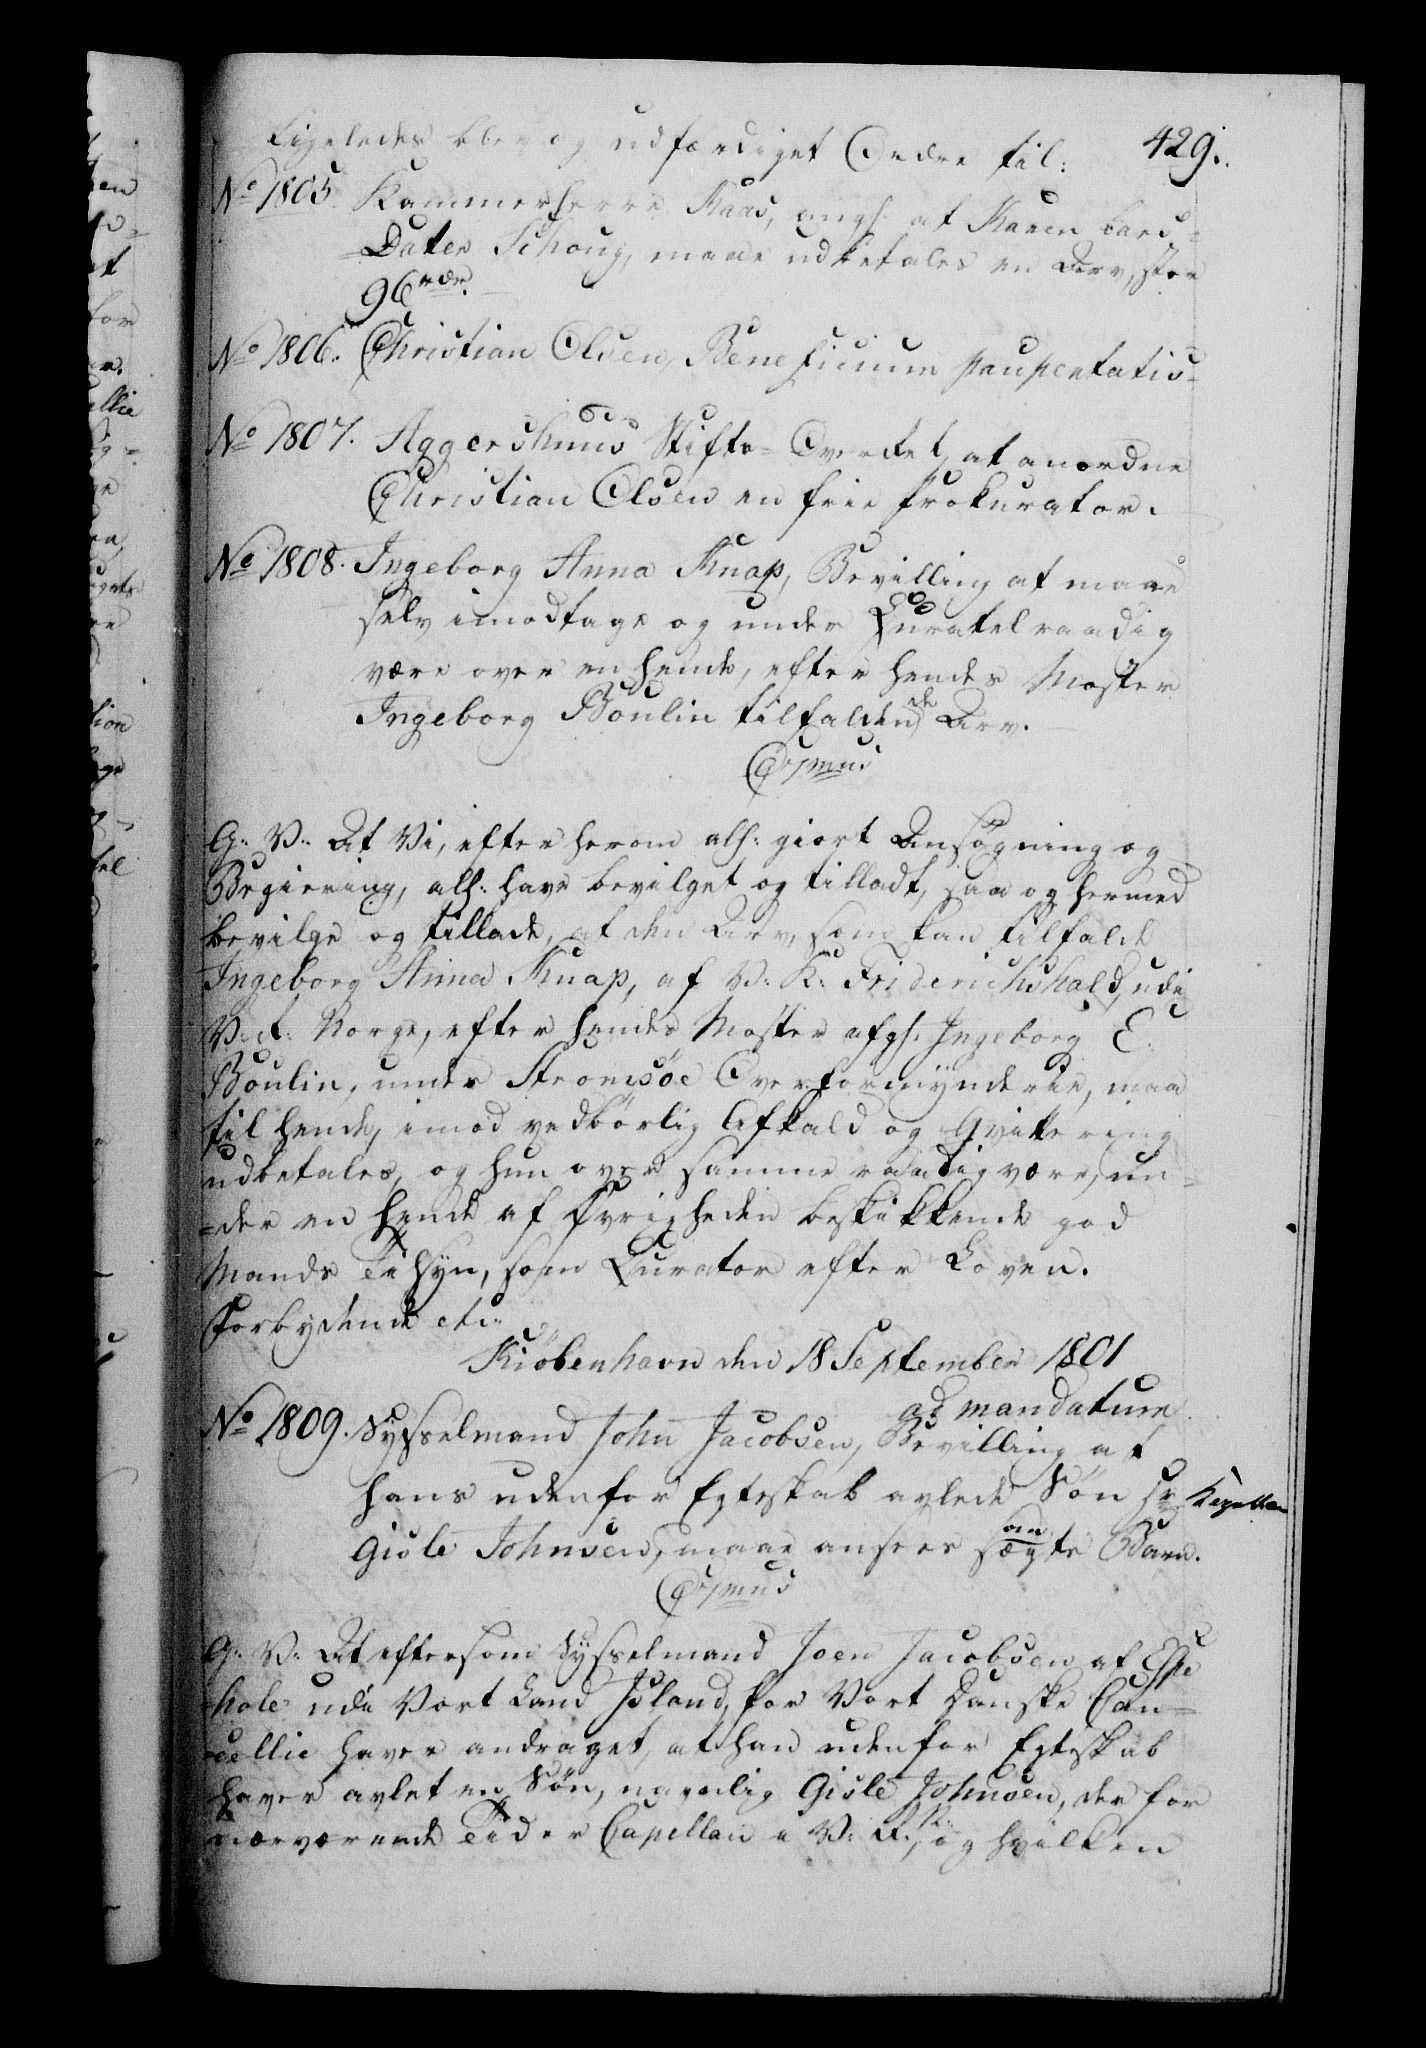 429.
Ligeledes blev og udfærdiget Ordre til:
No 1805. Kammerherre Kaas, angh: at Karen Lars-
Datter Schoug, maae udbetales en Arv, stor
96 rdr.
No 1806. Christian Olsen, Beneficium paupertatis-
No 1807. Aggershuus Stifts-Overret, at anordne
Christian Olsen en frie Prokurator.
No 1808. Ingeborg Anna Knap, Bevilling at maae
selv imodtage og under Curatel raadig
være over en hende, efter hendes Moster
Ingeborg Boulin tilfaldende Arv.
G: V: At Vi, efter herom allh: giort Ansøgning og
Begiering, allh: have bevilget og tilladt, saa og hermed
bevilge og tillade, at den Arv, som kan tilfalde
Ingeborg Anna Knap, af V: K: Friderichshald, udi
V: R: Norge, efter hendes Moster afgh: Ingeborg E.
Boulin, under Stromsøe Overformÿnderie, maa
til hende, imod vedbörlig Afkald og Qvittering
udbetales, og hun over samme raadig være, un-
-der en hende af Øvrigheden beskikkende god
Mands Tilsÿn, som Curator efter Loven.
Forbydende etc:
Kiöbenhavn den 18 September 1801
ad mandatum
No 1809. Sysselmand John Jacobsen, Bevilling at
hans udenfor Egteskab avlede Søn Hr Kapellan
Gisle Johnsen, maae ansees som ægte Barn.
G: V: At eftersom Sysselmand Joen Jacobsen af Espe
hole udi Vort Land Island, for Vort Danske Can-
-cellie haver andraget, at han udenfor Egteskab
haver avlet en Søn, navnlig Gisle Johnsen, der for
nærværende Tid er Capellan i V: R: N:, og hvilken